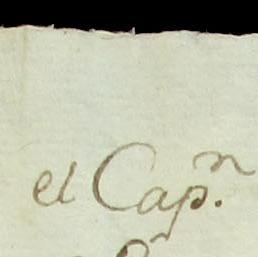 el Cap.ⁿ